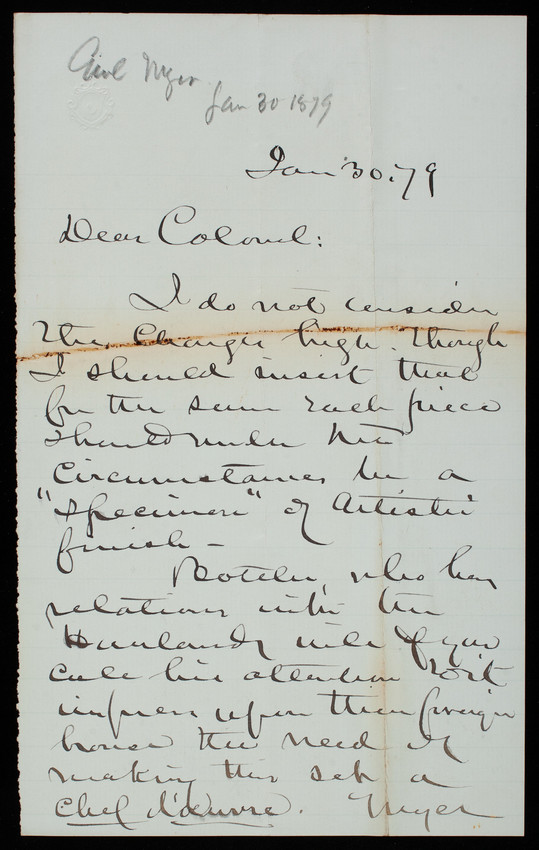 Genl Myer
Jan 30 1879
Jan 30. 79
Dear Colonel:
I do not consider
the charges high. though
I should insist that
for the sum each piece
should under the
circumstances be a
"specimen" of artistic
finish —
Boteler, who has
relations with the
Havilands will if you
call his attention to it
impress upon their foreign
house the need of
making this set a
chef d'œuvre. Myer